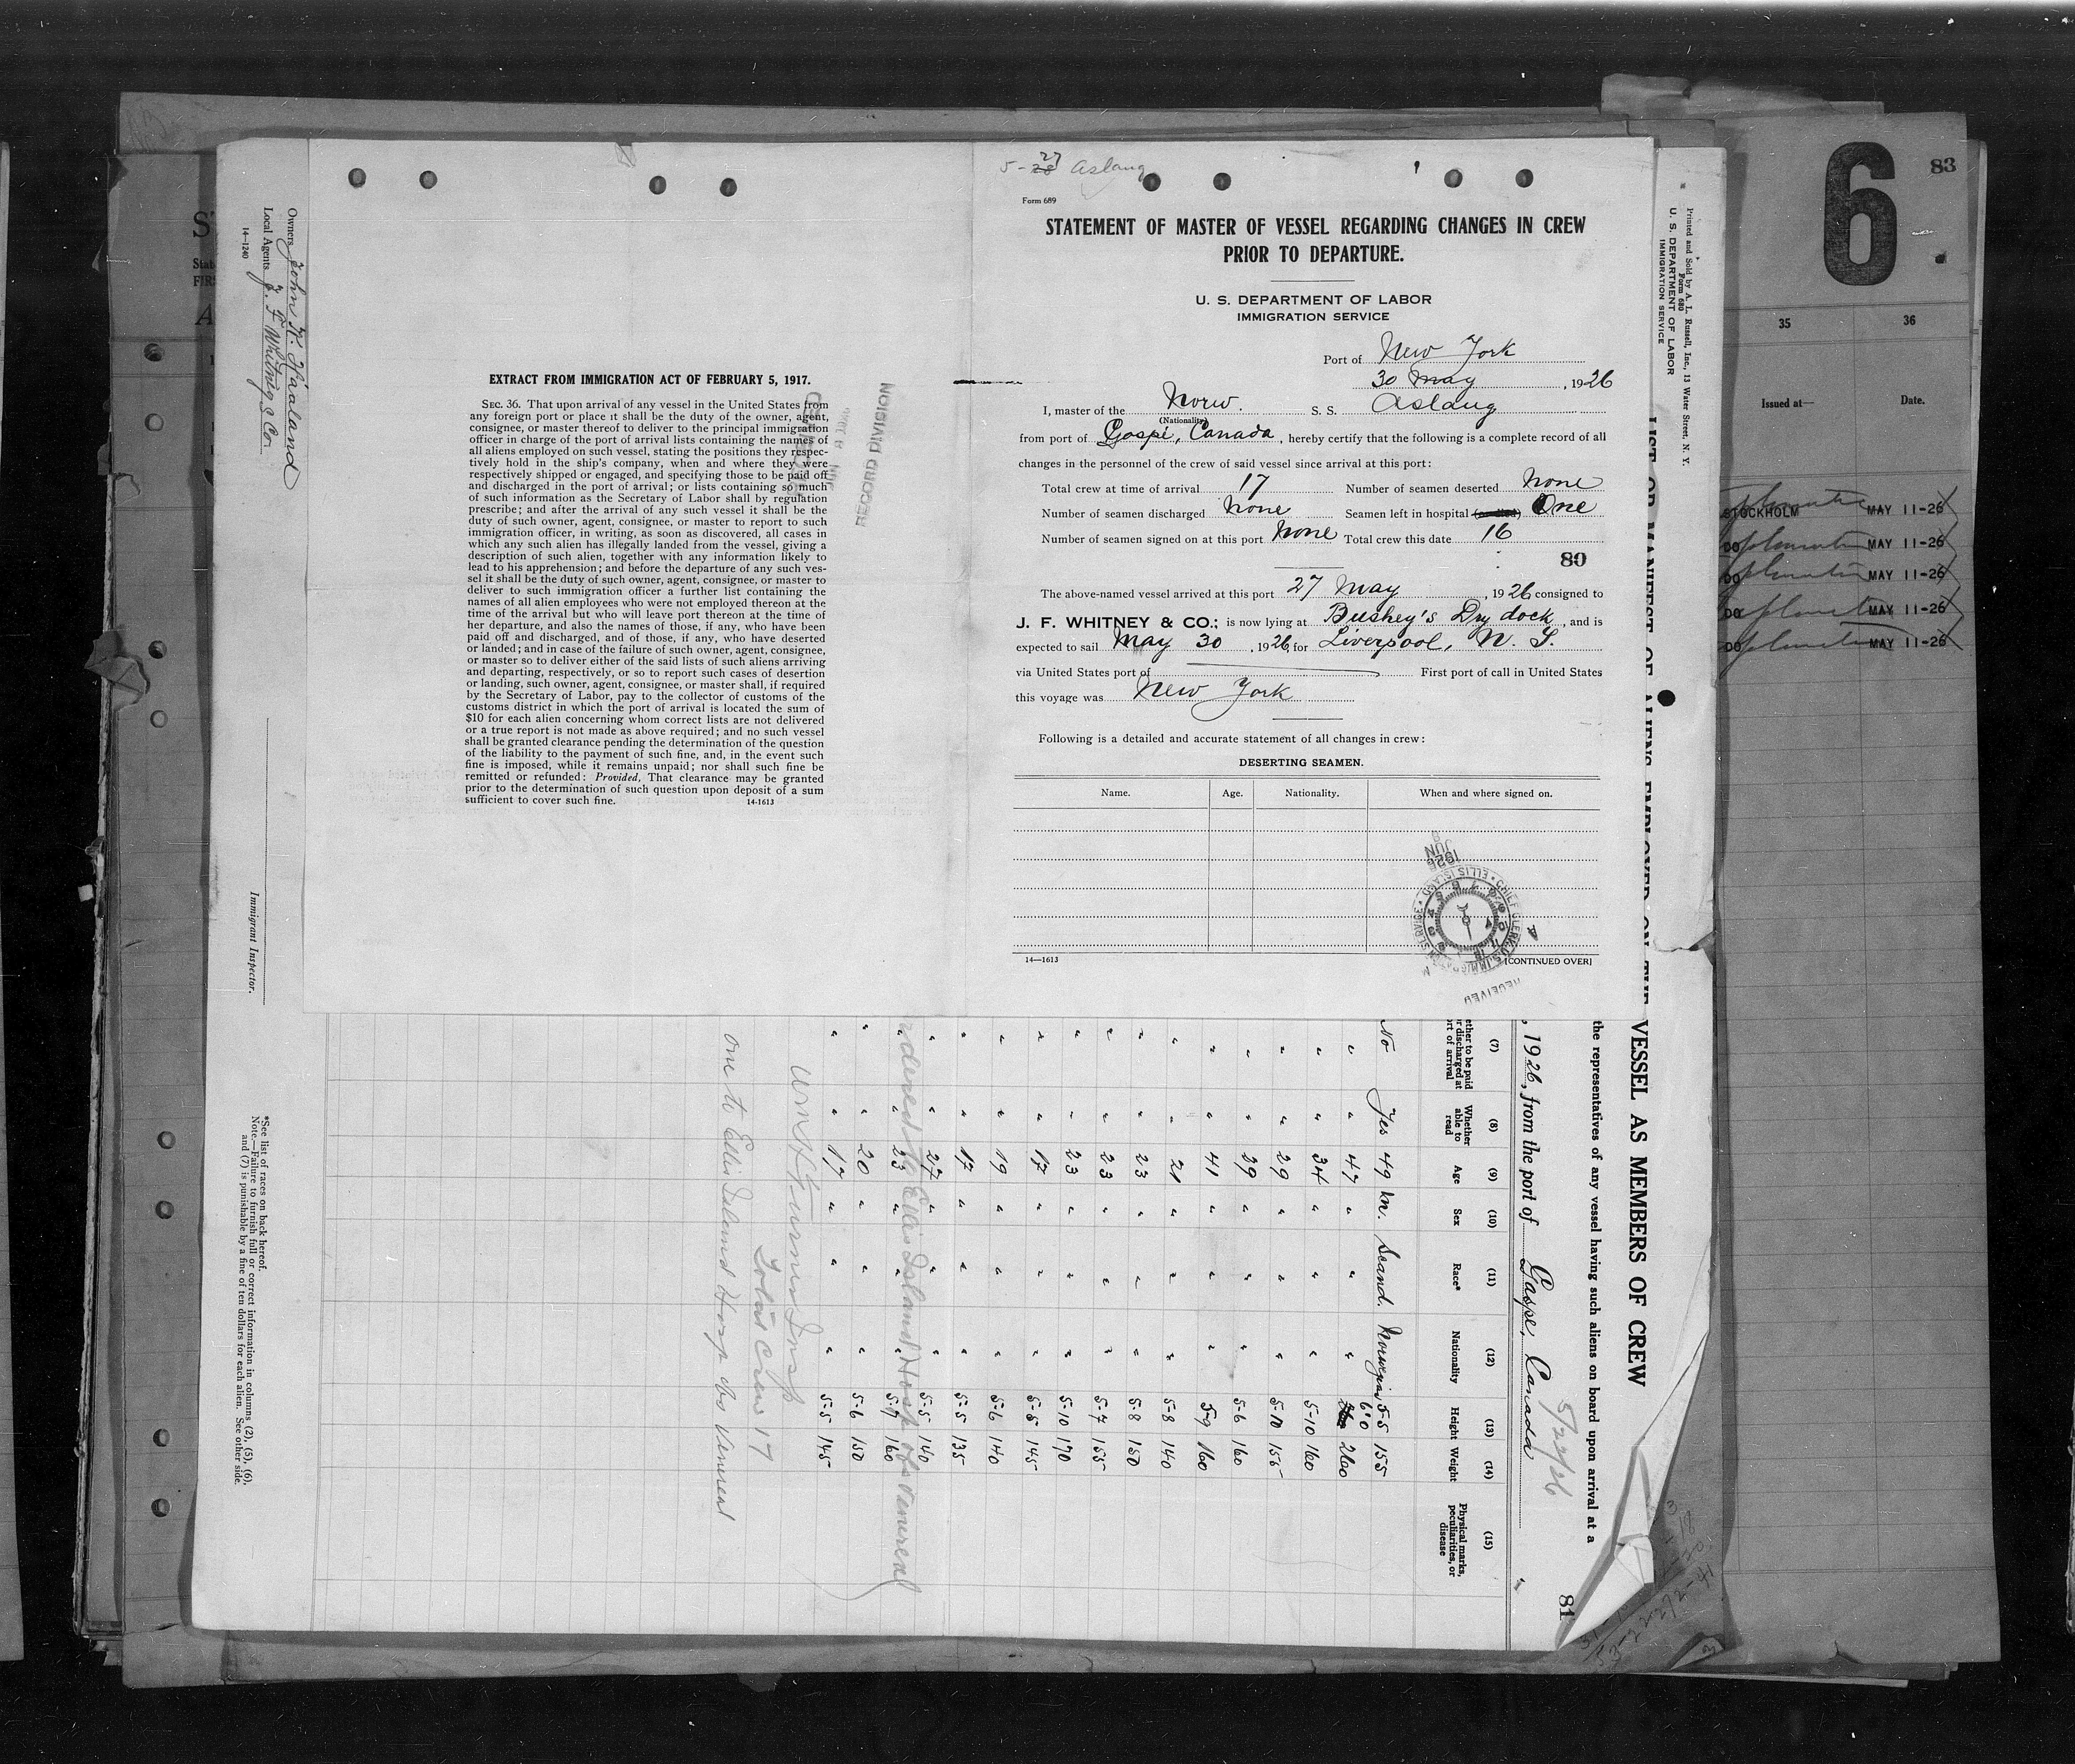 5-27 Aslaug
Form 689
STATEMENT OF MASTER OF VESSEL REGARDING CHANGES IN CREW
PRIOR TO DEPARTURE.
U. S. DEPARTMENT OF LABOR
IMMIGRATION SERVICE
Port of New York
30 May, 1926
I, master of the Norw. S. S. Aslaug
(Nationality)
from port of Gaspé, Canada, hereby certify that the following is a complete record of all
changes in the personnel of the crew of said vessel since arrival at this port:
Total crew at time of arrival 17 Number of seamen deserted None
Number of seamen discharged None Seamen left in hospital One
Number of seamen signed on at this port None Total crew this date 16
80
The above-named vessel arrived at this port 27 May, 1926 consigned to
J. F. WHITNEY & CO.; is now lying at Bushey's Dry dock, and is
expected to sail May 30, 1926, for Liverpool, N. S.
via United States port of First port of call in United States
this voyage was New York
Following is a detailed and accurate statement of all changes in crew:
DESERTING SEAMEN.
Name. Age. Nationality. When and where signed on.
14—1613
[CONTINUED OVER]
CHIEF CLERK, U.S. IMMIGRATION SERVICE • ELLIS ISLAND
JUN
1926
RECEIVED
EXTRACT FROM IMMIGRATION ACT OF FEBRUARY 5, 1917.
SEC. 36. That upon arrival of any vessel in the United States from
any foreign port or place it shall be the duty of the owner, agent,
consignee, or master thereof to deliver to the principal immigration
officer in charge of the port of arrival lists containing the names of
all aliens employed on such vessel, stating the positions they respec-
tively hold in the ship's company, when and where they were
respectively shipped or engaged, and specifying those to be paid off
and discharged in the port of arrival; or lists containing so much
of such information as the Secretary of Labor shall by regulation
prescribe; and after the arrival of any such vessel it shall be the
duty of such owner, agent, consignee, or master to report to such
immigration officer, in writing, as soon as discovered, all cases in
which any such alien has illegally landed from the vessel, giving a
description of such alien, together with any information likely to
lead to his apprehension; and before the departure of any such ves-
sel it shall be the duty of such owner, agent, consignee, or master to
deliver to such immigration officer a further list containing the
names of all alien employees who were not employed thereon at the
time of the arrival but who will leave port thereon at the time of
her departure, and also the names of those, if any, who have been
paid off and discharged, and of those, if any, who have deserted
or landed; and in case of the failure of such owner, agent, consignee,
or master so to deliver either of the said lists of such aliens arriving
and departing, respectively, or so to report such cases of desertion
or landing, such owner, agent, consignee, or master shall, if required
by the Secretary of Labor, pay to the collector of customs of the
customs district in which the port of arrival is located the sum of
$10 for each alien concerning whom correct lists are not delivered
or a true report is not made as above required; and no such vessel
shall be granted clearance pending the determination of the question
of the liability to the payment of such fine, and, in the event such
fine is imposed, while it remains unpaid; nor shall such fine be
remitted or refunded: Provided, That clearance may be granted
prior to the determination of such question upon deposit of a sum
sufficient to cover such fine. 14-1613
RECORD DIVISION
Owners
Local Agents J. F. Whitney & Co.
14—1240
Immigrant Inspector.
*See list of races on back hereof.
Note.—Failure to furnish full or correct information in columns (2), (5), (6),
and (7) is punishable by a fine of ten dollars for each alien. See other side.
Printed and Sold by A. L. Russell, Inc., 13 Water Street, N. Y.
Form 680
U. S. DEPARTMENT OF LABOR
IMMIGRATION SERVICE
LIST OR MANIFEST OF ALIENS EMPLOYED ON THE VESSEL AS MEMBERS OF CREW
the representatives of any vessel having such aliens on board upon arrival at a
, 1926, from the port of Gaspe, Canada
81
(7) (8) (9) (10) (11) (12) (13) (14) (15)
Whether able to read Age Sex Race* Nationality Height Weight Physical marks, peculiarities, or disease
No Yes 49 m. Scand. Norwegian 5-5 155
" " 47 " " " 6'0 260
" " 34 " " " 5-10 160
" " 29 " " " 5-10 155
" " 29 " " " 5-6 160
" " 41 " " " 5-9 160
" " 21 " " " 5-8 140
" " 23 " " " 5-8 150
" " 23 " " " 5-7 155
" " 23 " " " 5-10 170
" " 17 " " " 5-5 145
" " 19 " " " 5-6 140
" " 17 " " " 5-5 135
" " 27 " " " 5-5 140
" " 23 " " " 5-7 160
" " 20 " " " 5-6 150
" " 17 " " " 5-5 145
Ellis Island Hosp obs Venereal
Total Crew 17
one to Ellis Island Hosp obs Venereal
6
83
35 36
Issued at— Date.
STOCKHOLM MAY 11-26
DO MAY 11-26
DO MAY 11-26
DO MAY 11-26
DO MAY 11-26